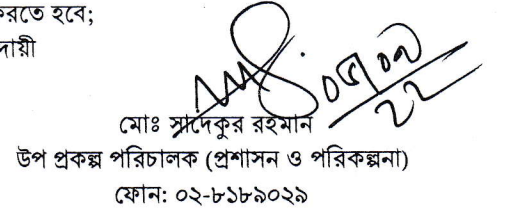 করতে হবে;
দায়ী
মোঃ সাদেকুর রহমান
উপ প্রকল্প পরিচালক (প্রশাসন ও পরিকল্পনা)
ফোন: ০২-৮১৮৯০২৯